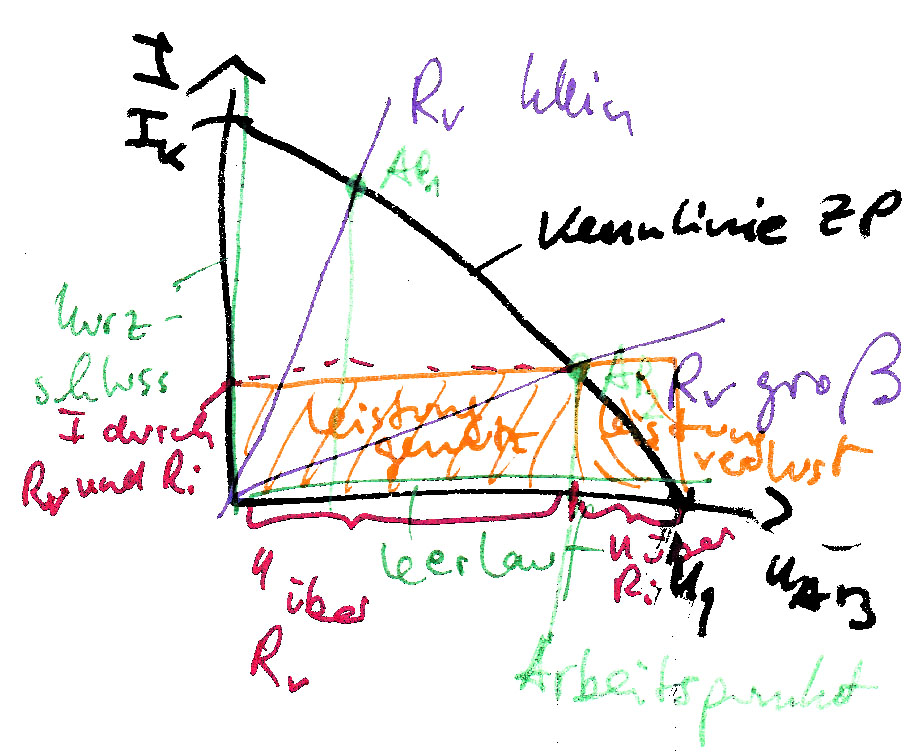 I
I_K
R_v klein
AP_1
Kennlinie ZP
Kurz-
schluss
I durch
R_v und R_i
Leistung
genutzt
AP_2
R_v groß
Leistung
verlust
U
über
R_v
Leerlauf
U über
R_i
U_q
U_AB
Arbeitspunkt